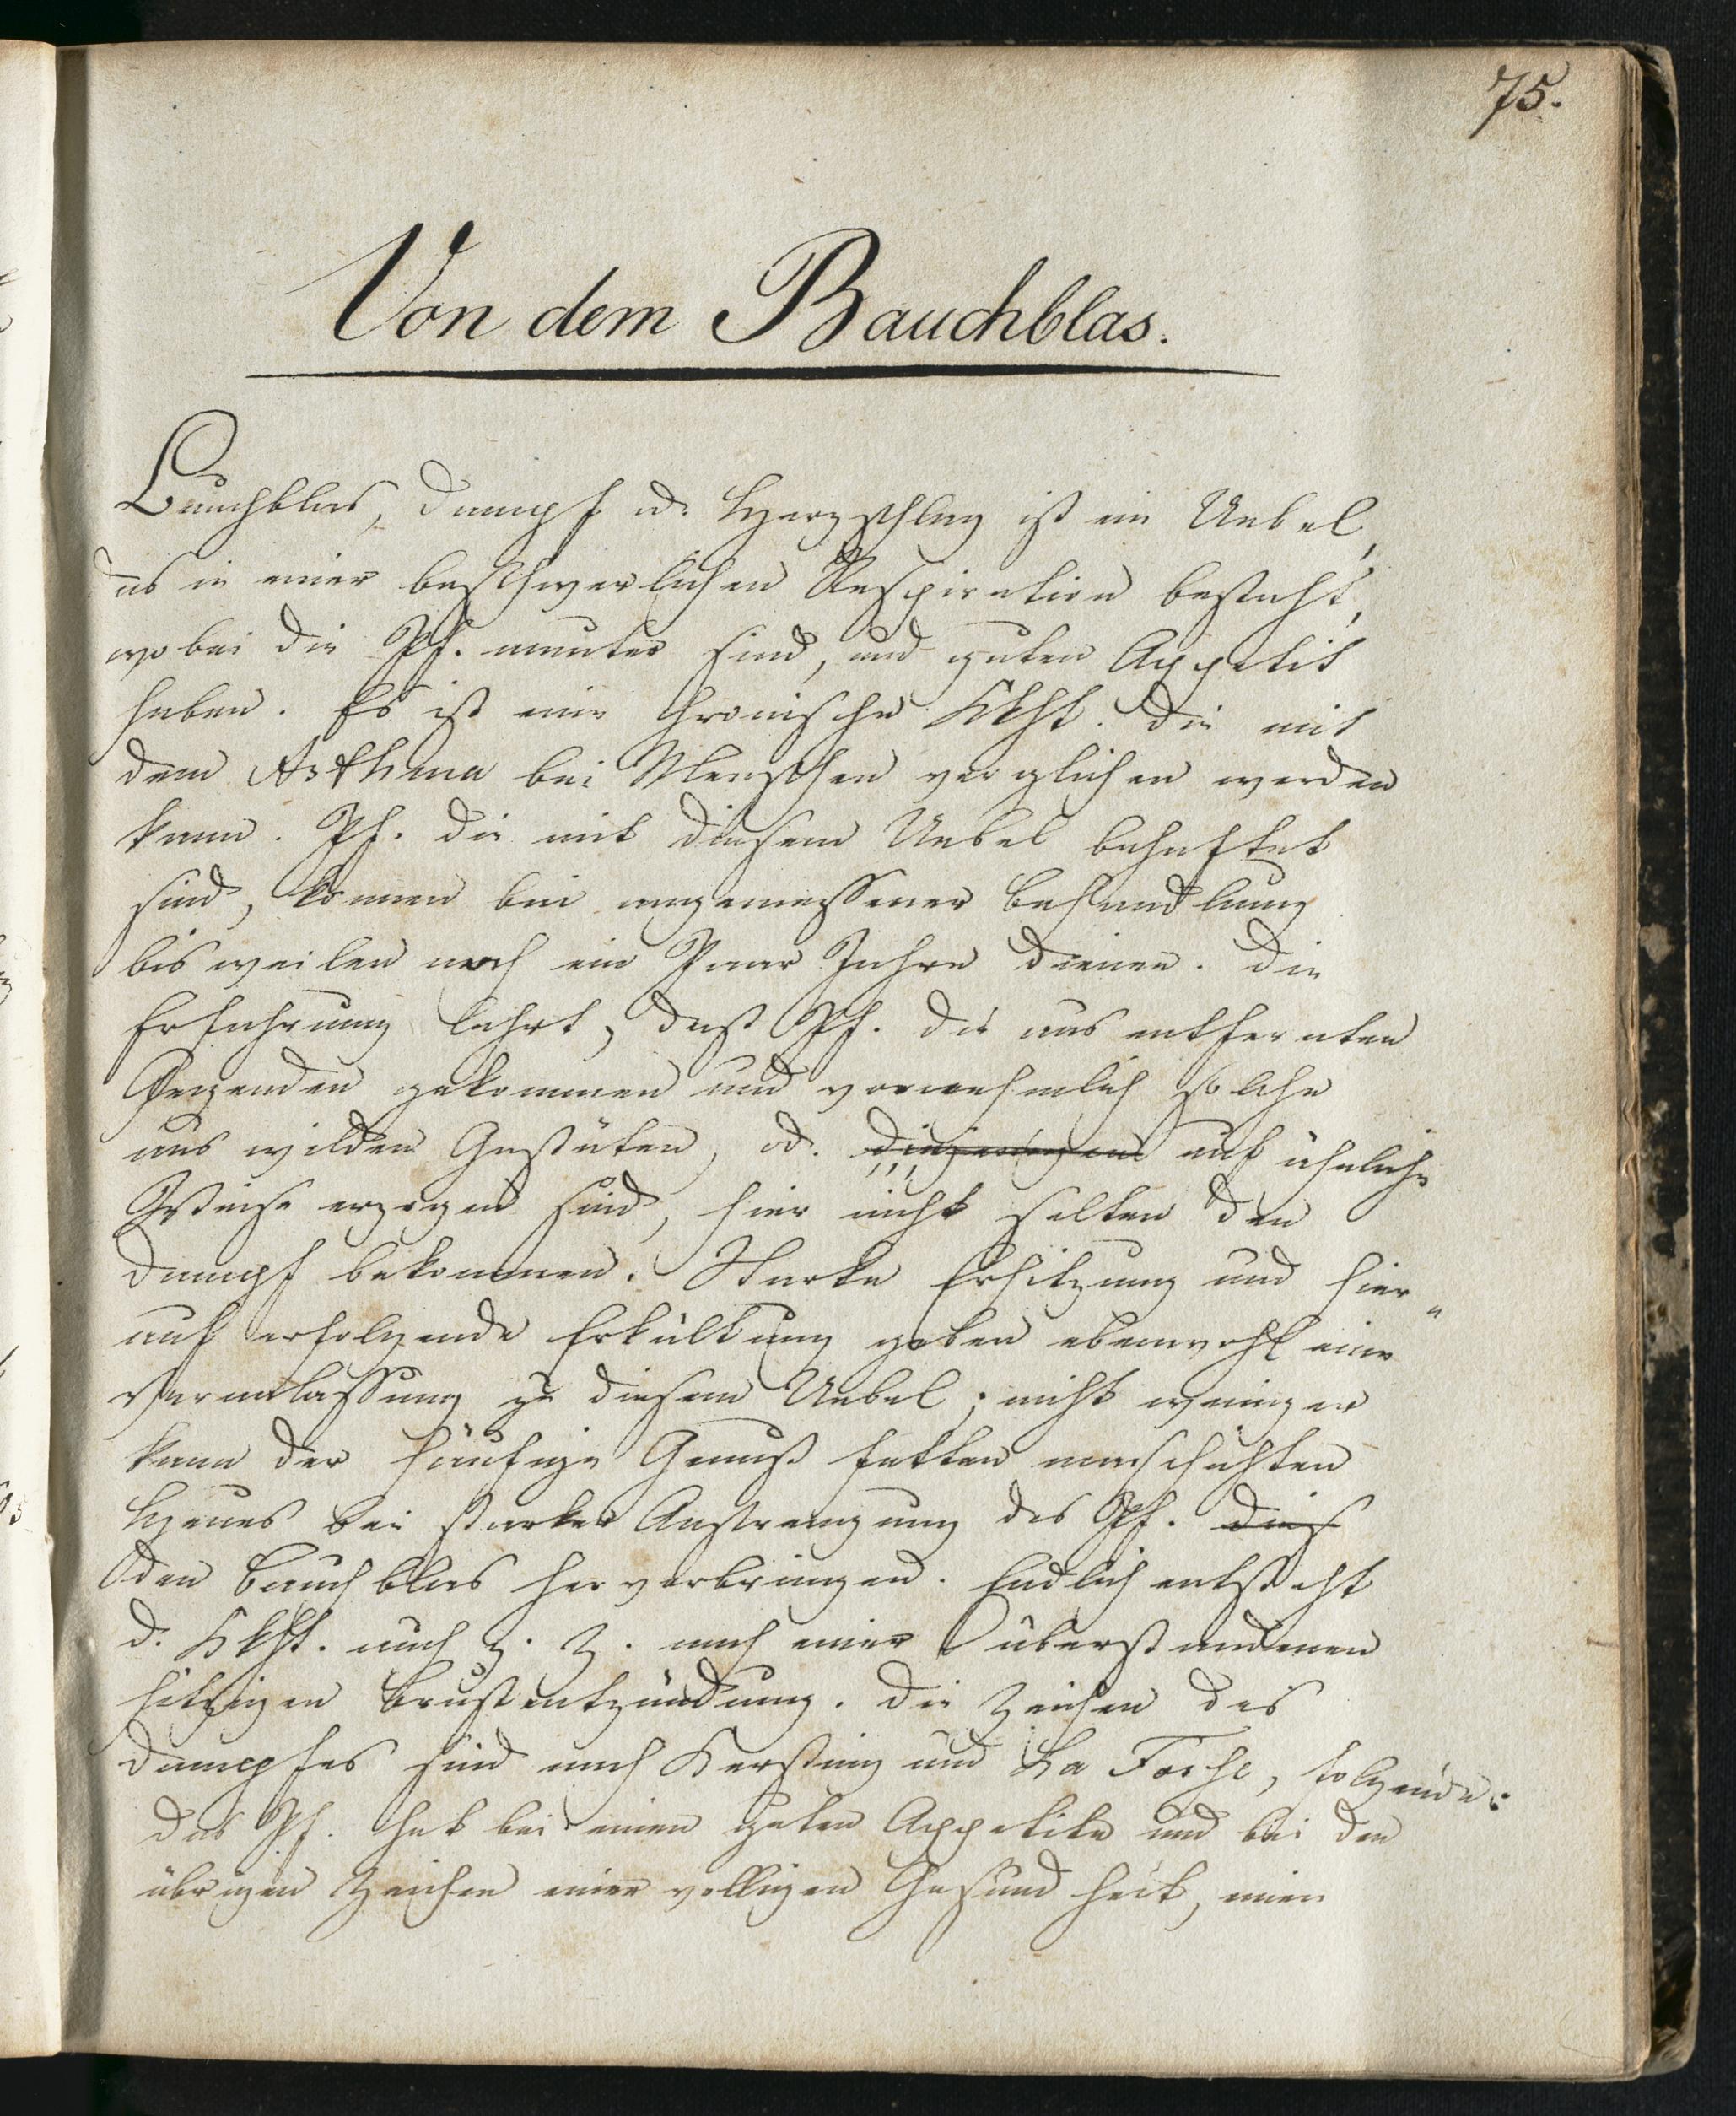 75.
Von dem Bauchblas.
Bauchblas, Dampf od. Herzschlag ist ein Uebel,
das in einer beschwerlichen Respiration besteht,
wobei die Pf. munter sind, und guten Appetit
haben. Es ist eine chronische Kkht. die mit
dem Asthma bei Menschen verglichen werden
kann. Pf. die mit diesem Uebel behaftet
sind, können bei angemessener Behandlung
bisweilen noch ein Paar Jahre dienen. Die
Erfahrung lehrt, daß Pf. die aus entfernten
Gegenden gekommen und vornehmlich solche
aus wilden Gestüten, od. diejenigen auf ähnliche
Weise erzogen sind, hier nicht selten den
Dampf bekommen. Starke Erhitzung und hier„
auf erfolgende Erkältung geben ebenwohl eine
Veranlassung zu diesem Uebel; nicht weniger
kann der häufige Genuß fetten
Heues bei starker Anstrengung des Pf. dies
den Bauchblas hervorbringen. Endlich entsteht
d. Kkht. auch z. Z. nach einer überstandenen
hitzigen Brustentzündung. Die Zeichen des
Dampfes sind nach Kersting und La Fosse, folgende:
Das Pf. hat bei einen guten Appetite und bei den
übrigen Zeichen einer völligen Gesundheit, einen